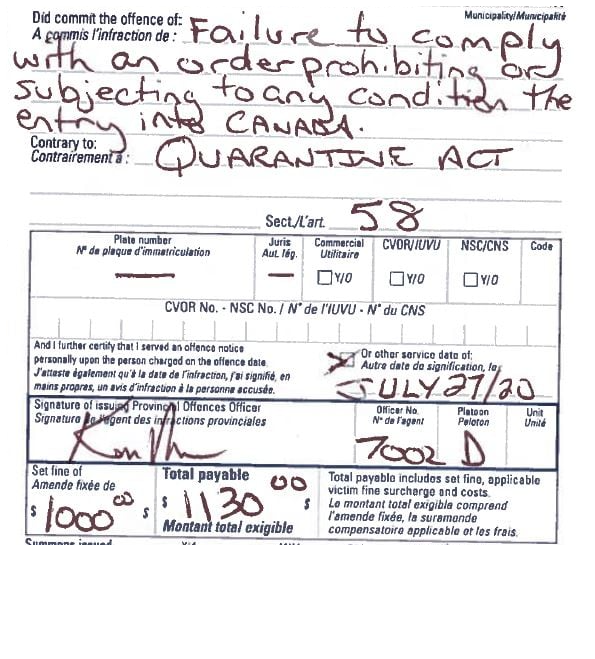 Did commit the offence of: Municipality/Municipalité
A commis l'infraction de : Failure to comply
with an order prohibiting or
subjecting to any condition the
entry into CANADA.
Contrary to:
Contrairement à : QUARANTINE ACT
Sect./L'art. 58
Plate number Juris Commercial CVOR/IUVU NSC/CNS Code
N° de plaque d'immatriculation Aut. lég. Utilitaire
— — Y/O Y/O Y/O
CVOR No. - NSC No. / N° de l'IUVU - N° du CNS
And I further certify that I served an offence notice
personally upon the person charged on the offence date.
J'atteste également qu'à la date de l'infraction, j'ai signifié, en
mains propres, un avis d'infraction à la personne accusée.
Or other service date of:
Autre date de signification, le:
JULY 27/20
Signature of issuing Provincial Offences Officer Officer No. Platoon Unit
Signature de l'agent des infractions provinciales N° de l'agent Peloton Unité
7002 D
Set fine of
Amende fixée de
$ 1000 00 $
Total payable
$ 1130 00 $
Montant total exigible
Total payable includes set fine, applicable
victim fine surcharge and costs.
Le montant total exigible comprend
l'amende fixée, la suramende
compensatoire applicable et les frais.
Summons issued